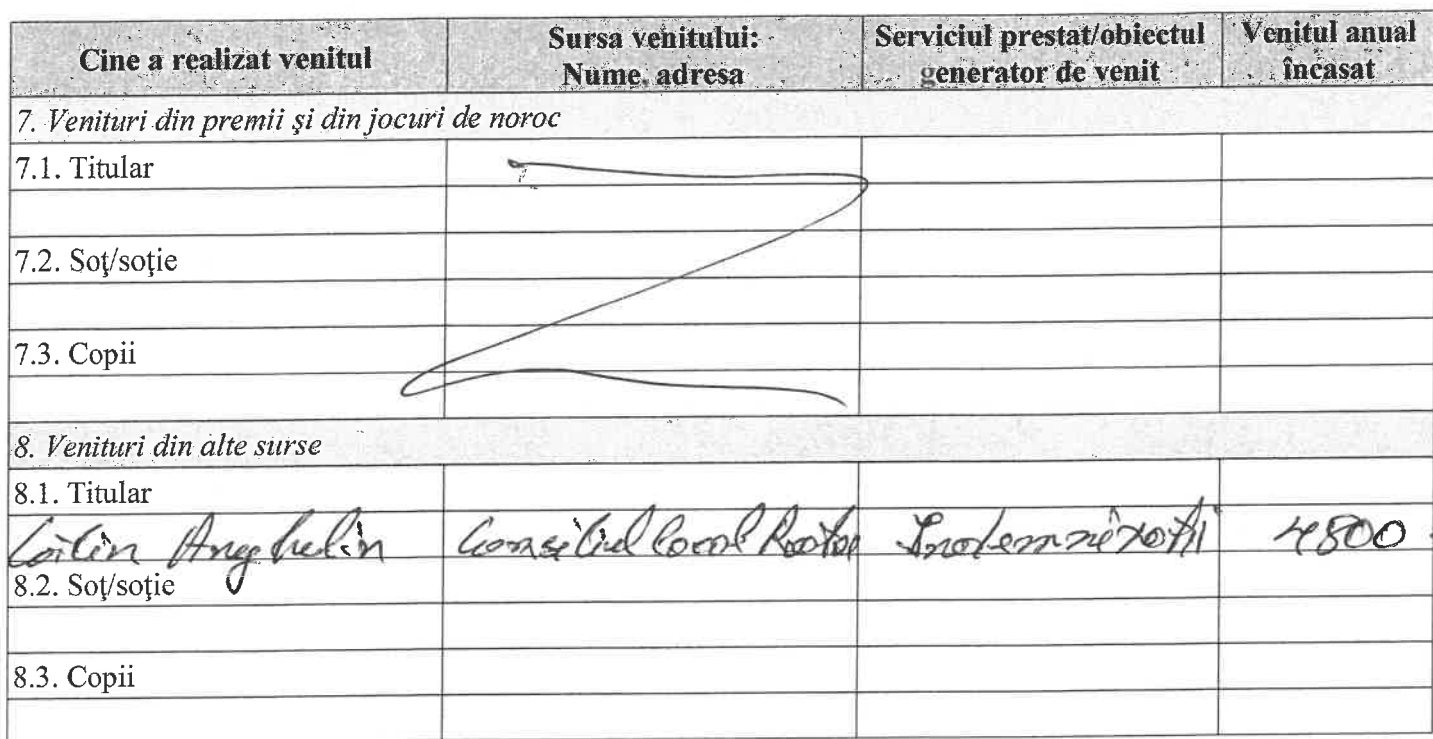 Cine a realizat venitul
Sursa venitului:
Nume, adresa
Serviciul prestat/obiectul
generator de venit
Venitul anual
încasat
7. Venituri din premii şi din jocuri de noroc
7.1. Titular
7.2. Soţ/soţie
7.3. Copii
8. Venituri din alte surse
8.1. Titular
Anghelin Consiliul local Indemnizații 4800
8.2. Soţ/soţie
8.3. Copii